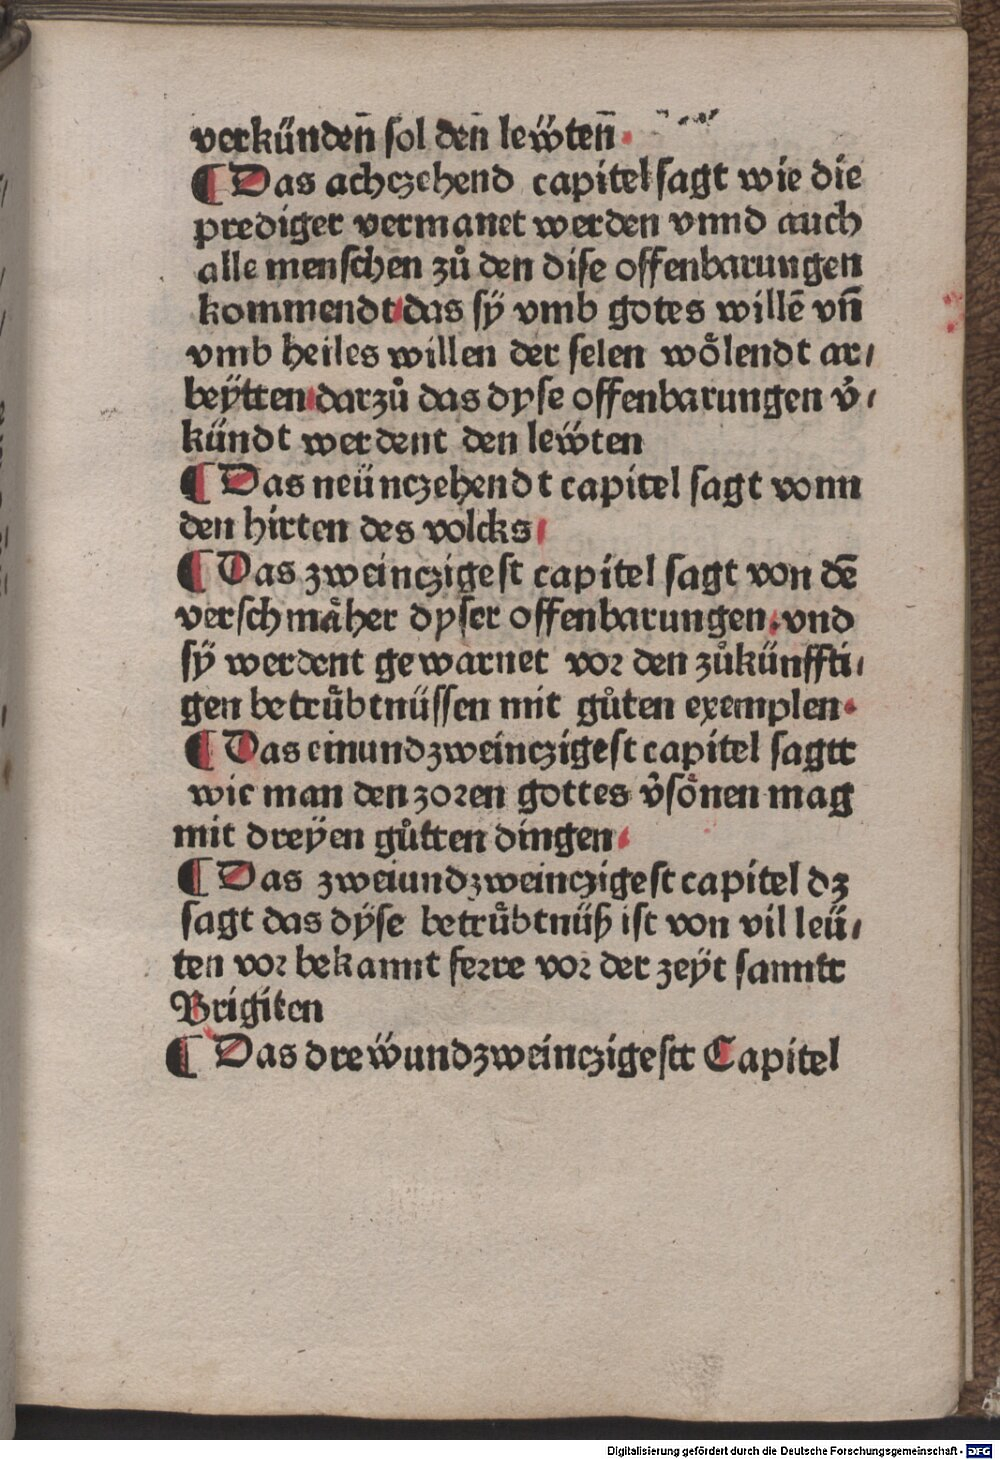 verkündeñ sol deñ leẅteñ.
¶ Das achczehend capitel sagt wie die
prediger vermanet werden vnnd auch
alle menschen zů den dise offenbarungen
kommendt das sÿ vmb gotes willē vn̄
vmb heiles willen der selen wo̊lendt ar⸗
beÿtten darzů das dyse offenbarungen v̉⸗
kündt werdent den leẅten
¶ Das neünczehendt capitel sagt vonn
den hirten des volcks
¶ Das zweinczigest capitel sagt von dē
verschma̋her dyser offenbarungen. vnd
sÿ werdent gewarnet vor den zůkünffti⸗
gen betrűbtnüssen mit gůten exemplen.
¶ Das einundzweinczigest capitel sagtt
wie man den zoren gottes v̉sőnen mag
mit dreyen gůtten dingen.
¶ Das zweiundzweinczigest capitel dz
sagt das dÿse betrűbtnüß ist von vil leü⸗
ten vor bekannt ferre vor der zeÿt sanntt
Brigiten
¶ Das dreẅundzweinczigestt Capitel
Digitalisierung gefördert durch die Deutsche Forschungsgemeinschaft - DFG